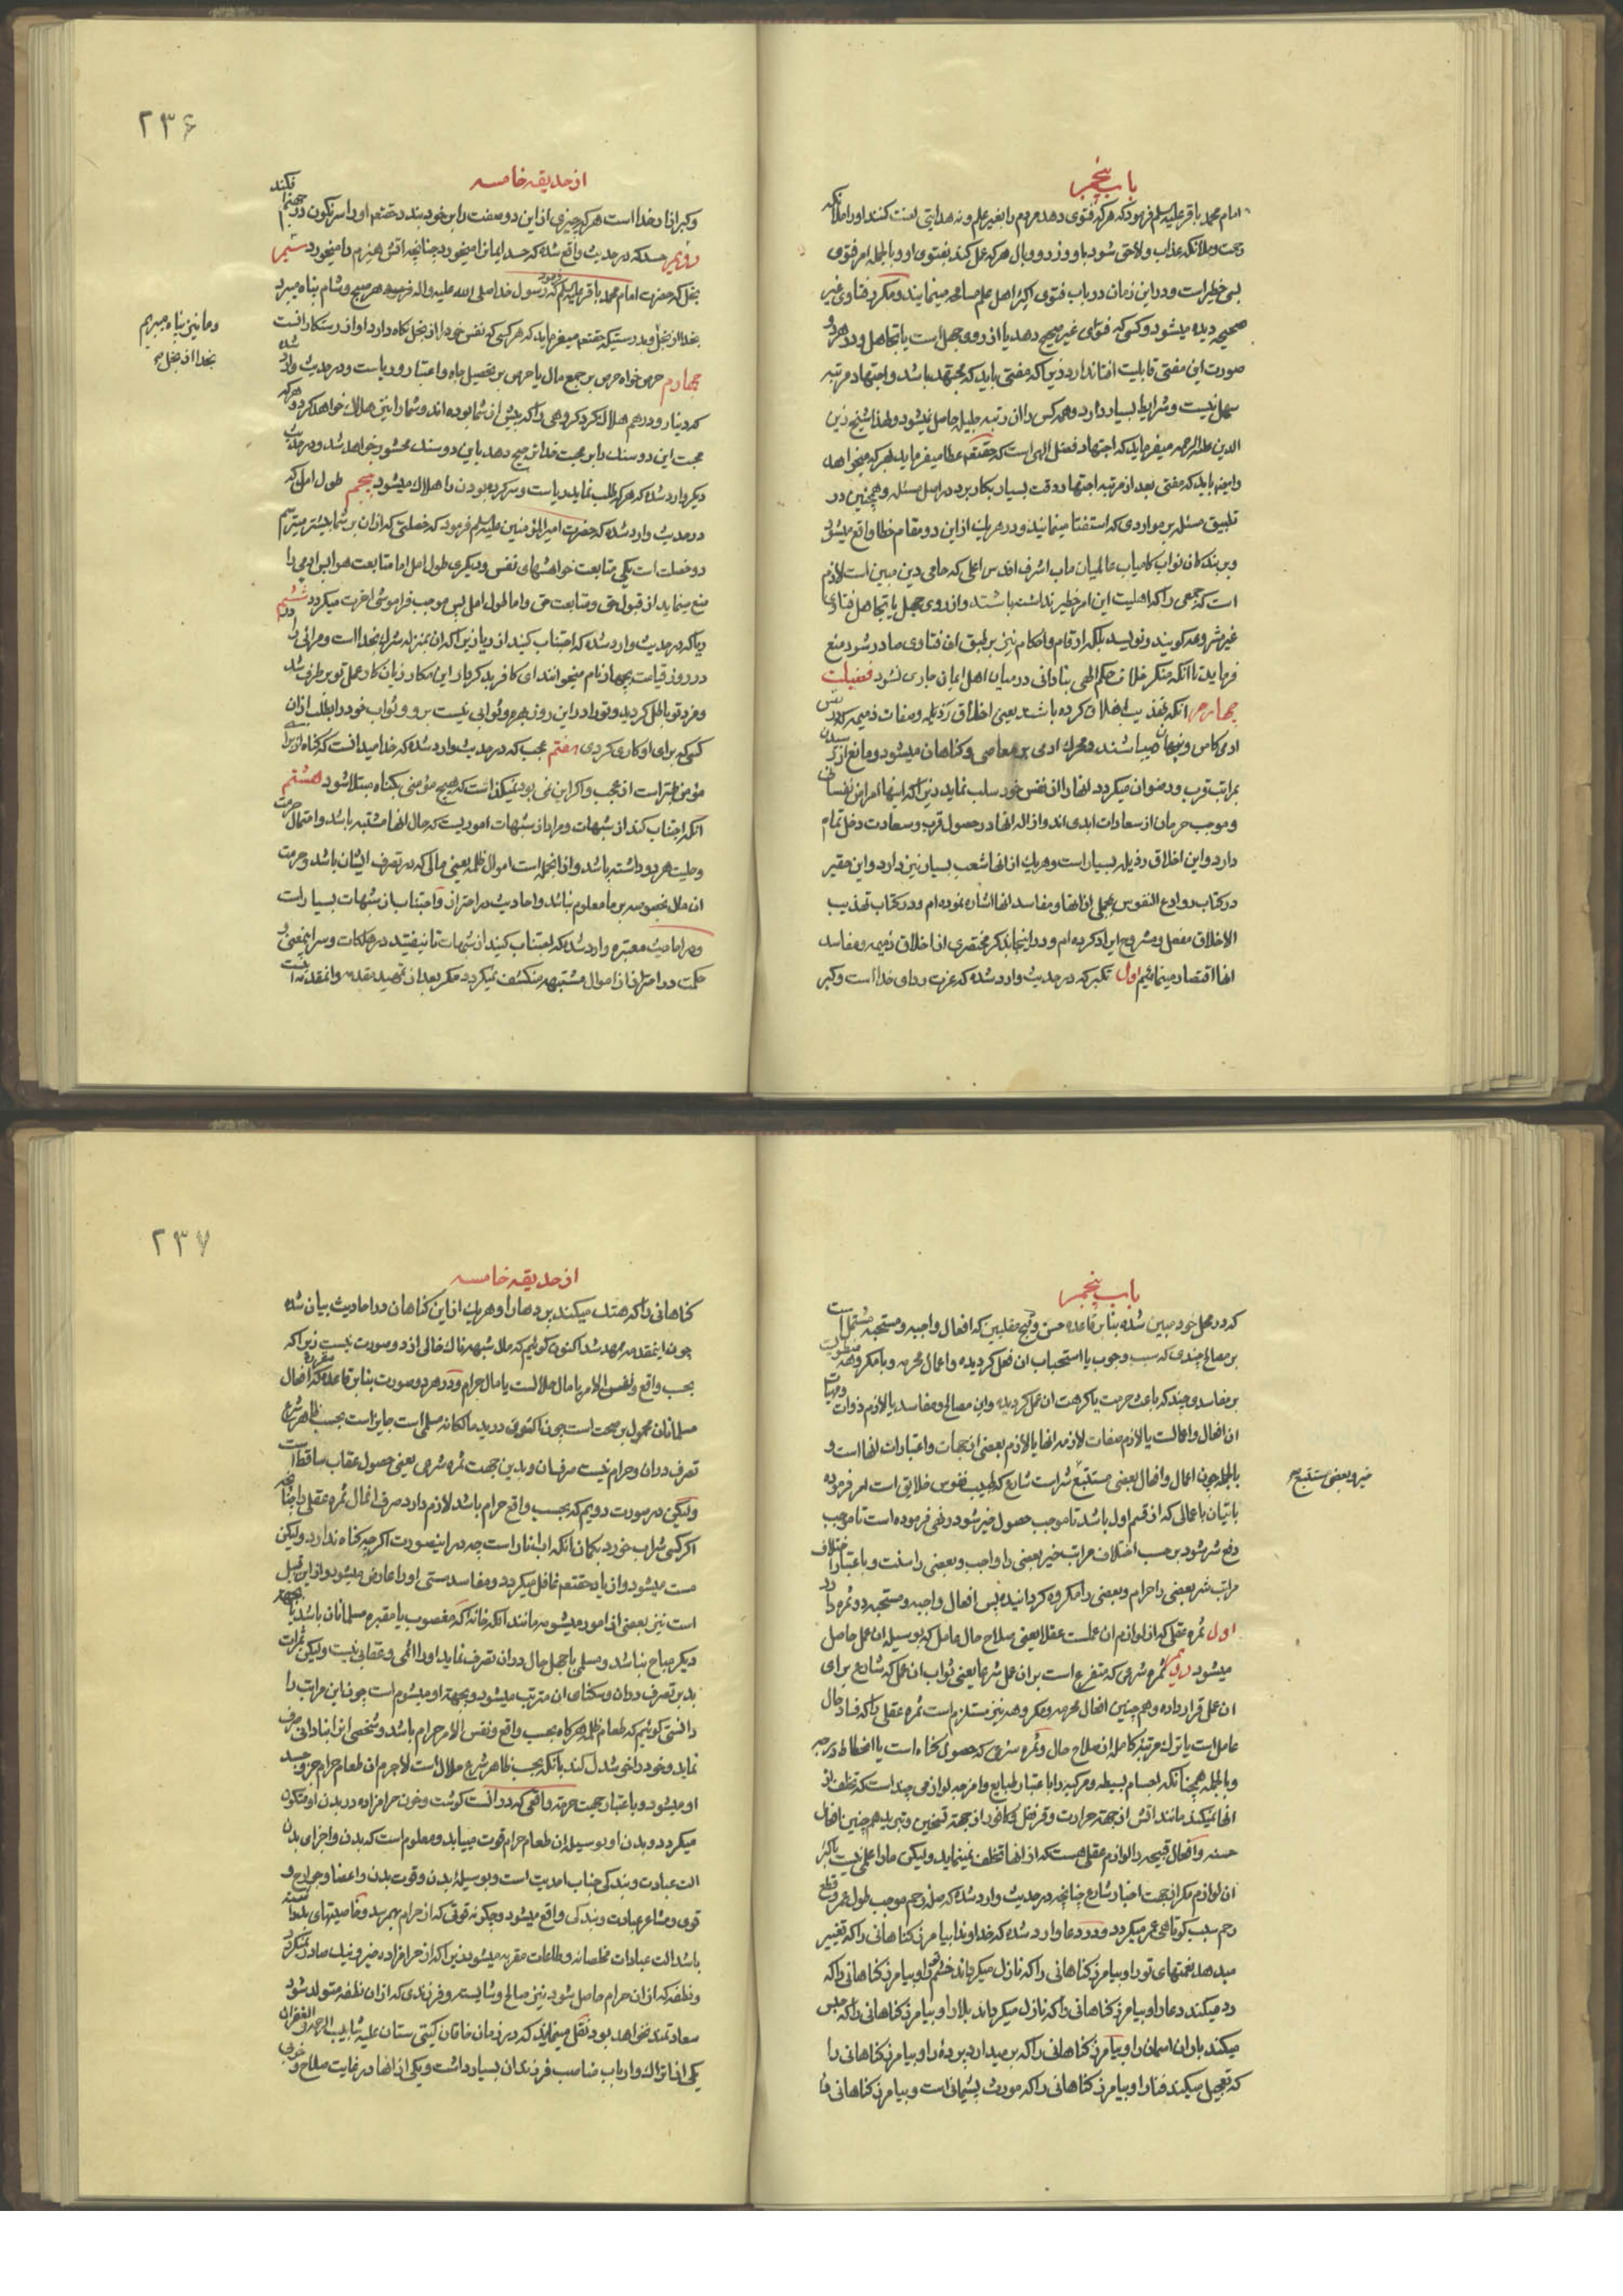 باب پنجم
امام محمد باقر علیه السلم فرمود که هر که فتوی دهد مردم را بغیر علم و نه هدایتی لعنت کنند او را ملائکه
رحمت و ملائکه عذاب و لاحق شود باو وزر و وبال هر که عمل کند بفتوی او و بالجمله امر فتوی
بسی خطیر است و در این زمان در باب فتوی اکثر اهل علم مسامحه مینمایند و مکرر فتاوی غیر
صحیحه دیده میشود و کسی که فتوای غیر صحیح دهد یا از روی جهل است یا تجاهل و در هر دو
صورت این مفتی قابلیت افتا ندارد زیرا که مفتی باید که مجتهد باشد و اجتهاد مرتبه
سهل نیست و شرایط بسیار دارد و همه کس را آن رتبه جلیله حاصل نمیشود و لهذا شیخ زین
الدین علیه الرحمه میفرماید که اجتهاد فضل الهی است که حقتعم عطا میفرماید بهر که میخواهد
و ایضا باید که مفتی بعد از مرتبه اجتهاد دقت بسیار بکار برد در اصل مسئله و همچنین در
تطبیق مسئله بر مواردی که استفتا مینمایند و در هر یک از این دو مقام خطا واقع میشود
و بر بندکان نواب کامیاب عالمیان ماب اشرف اقدس اعلی که حامی دین مبین است لازم
است که جمعی را که اهلیت این امر خطیر نداشته باشند و از روی جهل یا تجاهل فتاوی
غیر مشروعه کویند و نویسند بلکه ارقام و احکام نیز بر طبق آن فتاوی صادر شود منع
فرماید تا آنکه منکر خلاف حکم الهی بنادانی در میان اهل ایمان جاری نشود فضیلت
چهارم آنکه تهذیب اخلاق کرده باشد یعنی اخلاق رذیله و صفات ذمیمه که در نفس
ادمی کامن و پنهان میباشند و محرک ادمی بر معاصی و کناهان میشود و مانع از رسیدن
بمراتب قرب و رضوان میکردد انها را از نفس خود سلب نماید زیرا که اینها امراض نفسانی
و موجب حرمان از سعادات ابدی اند و ازاله انها در حصول قرب و سعادت دخل تمام
دارد و این اخلاق رذیله بسیار است و هر یک از انها شعب بسیار نیز دارد و این حقیر
در کتاب روادع النفوس مجملی از انها و مفاسد انها اشاره نموده ام و در کتاب تهذیب
الاخلاق مفصل و مشروح ایراد کرده ام و در اینجا بذکر مختصری از اخلاق ذمیمه و مفاسد
انها اقتصار مینمائیم اول تکبر که در حدیث وارد شده که عزت ردای خدا است و کبر
۲۳۶
از حدیقه خامسه
و کبر ازار خدا است هر که چیزی از این دو صفت را بر خود بندد حقتعم او را سرنکون در جهنم افکند
دویم حسد که در حدیث واقع شده که حسد ایمان را میخورد چنانچه اتش هیزم را میخورد سیم
بخل که حضرت امام محمد باقر علیه السلم فرمود که رسول خدا صلی الله علیه و اله هر صبح و شام پناه میبرد
بخدا از بخل و بدرستیکه حقتعم میفرماید که هر کسی که نفس خود را از بخل نکاه دارد او از رستکارانست
و ما نیز پناه میبریم
بخدا از بخل صح
چهارم حرص خواه حرص بر جمع مال یا حرص بر تحصیل جاه و اعتبار و ریاست و در حدیث وارد شده
که دینار و درهم هلاک کرد کروهی را که پیش از شما بوده اند و شما را نیز هلاک خواهد کرد و هر که
محبت این دو سنک را بر محبت خدا ترجیح دهد با این دو سنک محشور خواهد شد و در حدیث
دیکر وارد شده که هر که طلب نماید ریاست و سرکرده بودن را هلاک میشود پنجم طول امل که
در حدیث وارد شده که حضرت امیر المؤمنین علیه السلم فرمود که خصلتی که از ان بر شما بیشتر میترسم
دو خصلت است یکی متابعت خواهشهای نفس و دیکری طول امل اما متابعت هوا پس ادمی را
منع مینماید از قبول حق و متابعت حق و اما طول امل پس موجب فراموشی اخرت میکردد ششم
ریا که در حدیث وارد شده که اجتناب کنید از ریا زیرا که ان بمنزله شرک بخدا است و مرائی را
در روز قیامت بچهار نام میخوانند ای کافر بدکردار ای مکار زیان کار عمل تو بر طرف شد
و مزد تو باطل کردید و تو را در این روز بهره و ثوابی نیست برو و ثواب خود را بطلب از ان
کسی که برای او کار میکردی هفتم عجب که در حدیث وارد شده که خدا میدانست که کناه از برای
مؤمن بهتر است از عجب و اکر این نمی بود نمیکذاشت که هیچ مؤمنی بکناه مبتلا شود هشتم
انکه اجتناب کند از شبهات و مراد از شبهات اموریست که حال انها مشتبه باشد و احتمال حرمت
و حلیت هر دو داشته باشد و از انجمله است اموال ظلمه یعنی مالی که در تصرف ایشان باشد و حرمت
ان مال بخصوصه بر ما معلوم نباشد و احادیث در احتراز و اجتناب از شبهات بسیار است
و در احادیث معتبره وارد شده که اجتناب کنید از شبهات تا نیفتید در مهلکات و سر اینمعنی و
حکمت در احتراز از اموال مشتبهه منکشف نمیکردد مکر بعد از تمهید مقدمه و انمقدمه اینست
باب پنجم
که در محل خود مبین شده بنا بر قاعده حسن و قبح عقلیین که افعال واجبه و مستحبه مشتمل است
بر مصالح چندی که سبب وجوب یا استحباب ان فعل کردیده و اعمال محرمه و یا مکروهه منطویست
بر مفاسدی چند که باعث حرمت یا کرهت ان عمل کردیده و این مصالح و مفاسد یا لازم ذوات
ان افعال و اعمالست یا لازم صفات لازمه انها یا لازم بعضی از جهات و اعتبارات انها است و
بالجمله چون اعمال و افعال بعضی مستتبع شر است شارع که طبیب نفوس خلایق است امر فرموده
خیر و بعضی مستتبع صح
باتیان باعمالی که از قسم اول باشد تا موجب حصول خیر شود و نهی فرموده است تا موجب
دفع شر شود بر حسب اختلاف مراتب خیر بعضی را واجب و بعضی را سنت و باعتبار اختلاف
مراتب شر بعضی را حرام و بعضی را مکروه کردانیده پس افعال واجبه و مستحبه دو ثمره دارد
اول ثمره عقلی که از لوازم ان عملست عقلا یعنی صلاح حال عامل که بوسیله ان عمل حاصل
میشود دویم ثمره شرعی که متفرع است بر ان عمل شرعا یعنی ثواب ان عمل که شارع برای
ان عمل قرار داده و هم چنین افعال محرمه و مکروهه نیز مستلزم است ثمره عقلی را که فساد حال
عامل است یا ترک مرتبه کامله از صلاح حال و ثمره شرعی که حصول کناه است یا انحطاط درجه
و بالجمله همچنانکه اجسام بسیطه و مرکبه را باعتبار طبایع و امزجه لوازمی چند است که تخلف از
انها نمیکند مانند اتش از جهة حرارت و قرنفل و کافور از جهة تسخین و تبرید هم چنین افعال
حسنه و افعال قبیحه را لوازم عقلی هست که از انها تخلف نمینماید و لیکن ما را علمی نیست باکثر
ان لوازم مکر از جهت اخبار شارع چنانچه در حدیث وارد شده که صله رحم موجب طول عمر و قطع
رحم سبب کوتاهی عمر میکردد و در دعا وارد شده که خداوندا بیامرز کناهانی را که تغییر
میدهد نعمتهای تو را و بیامرز کناهانی را که نازل میکرداند خشم تو را و بیامرز کناهانی را که
رد میکند دعا را و بیامرز کناهانی را که نازل میکرداند بلا را و بیامرز کناهانی را که حبس
میکند باران اسمان را و بیامرز کناهانی را که بر میدارد پرده را و بیامرز کناهانی را
که تعجیل میکند فنا را و بیامرز کناهانی را که مورث پشیمانی است و بیامرز کناهانی را
۲۳۷
از حدیقه خامسه
کناهانی را که هتک میکند پردها را و هر یک از این کناهان در احادیث بیان شده
چون اینمقدمه ممهد شد اکنون کوئیم که مال شبهه ناک خالی از دو صورت نیست زیرا که
بحسب واقع و نفس الامر یا مال حلالست یا مال حرام و در هر دو صورت بنا بر قاعده مقرره که افعال
مسلمانان محمول بر صحت است چون اکنون در ید مالکانه مسلمی است جایز است بحسب ظاهر شرع
تصرف در ان و حرام نیست صرف ان و بدین جهت ثمره شرعی یعنی حصول عقاب ساقط است
و لیکن در صورت دویم که بحسب واقع حرام باشد لازم دارد صرف انمال ثمره عقلی را چنانچه
اکر کسی شراب خورد بکمان انکه اب انار است چه در اینصورت اکر چه کناه ندارد و لیکن
مست میشود و از یاد حقتعم غافل میکردد و مفاسد مستی او را عارض میشود و از این قبیل
است نیز بعضی از امور میشومه مانند انکه خانه که مغصوب یا مقبره مسلمانان باشد یا بجهة
دیکر مباح نباشد و مسلمی با جهل حال در ان تصرف نماید او را اثمی و عقابی نیست و لیکن ثمرات
بد بر تصرف در ان و سکنای ان مترتب میشود و بجهة او میشوم است چون این مراتب را
دانستی کوئیم که طعام ظلمه هر کاه بحسب واقع و نفس الامر حرام باشد و شخصی از نادانی صرف
نماید و خود را خوشدل کند بانکه بحسب ظاهر شرع حلال است لاجرم ان طعام حرام جزو جسد
او میشود و باعتبار جهت حرمة واقعی که در انست کوشت و خون حرامزاده در بدن او متکون
میکردد و بدن او بوسیله ان طعام حرام قوت مییابد و معلوم است که بدن و اجزای بدن
الت عبادت و بندکی جناب احدیت است و بوسیله بدن و قوت بدن و اعضا و جوارح و
قوی و مشاعر عبادت و بندکی واقع میشود و چکونه قوتی که از حرام بهمرسد و خاصیتهای بد داشته
باشد الت عبادات مخلصانه و طاعات مقربه میشود زیرا که از حرامزاده خیر و نیک صادر نمیکردد
و نطفه که از ان حرام حاصل شود نیز صالح و شایسته و فرزندی که از ان نطفه متولد شود
سعادتمند نخواهد بود نقل مینمایند که در زمان خاقان کیتی ستان علیه شابیب الرحمه و الغفران
یکی از اتراک و ارباب مناصب فرزندان بسیار داشت و یکی از انها در غایت صلاح و خوبی